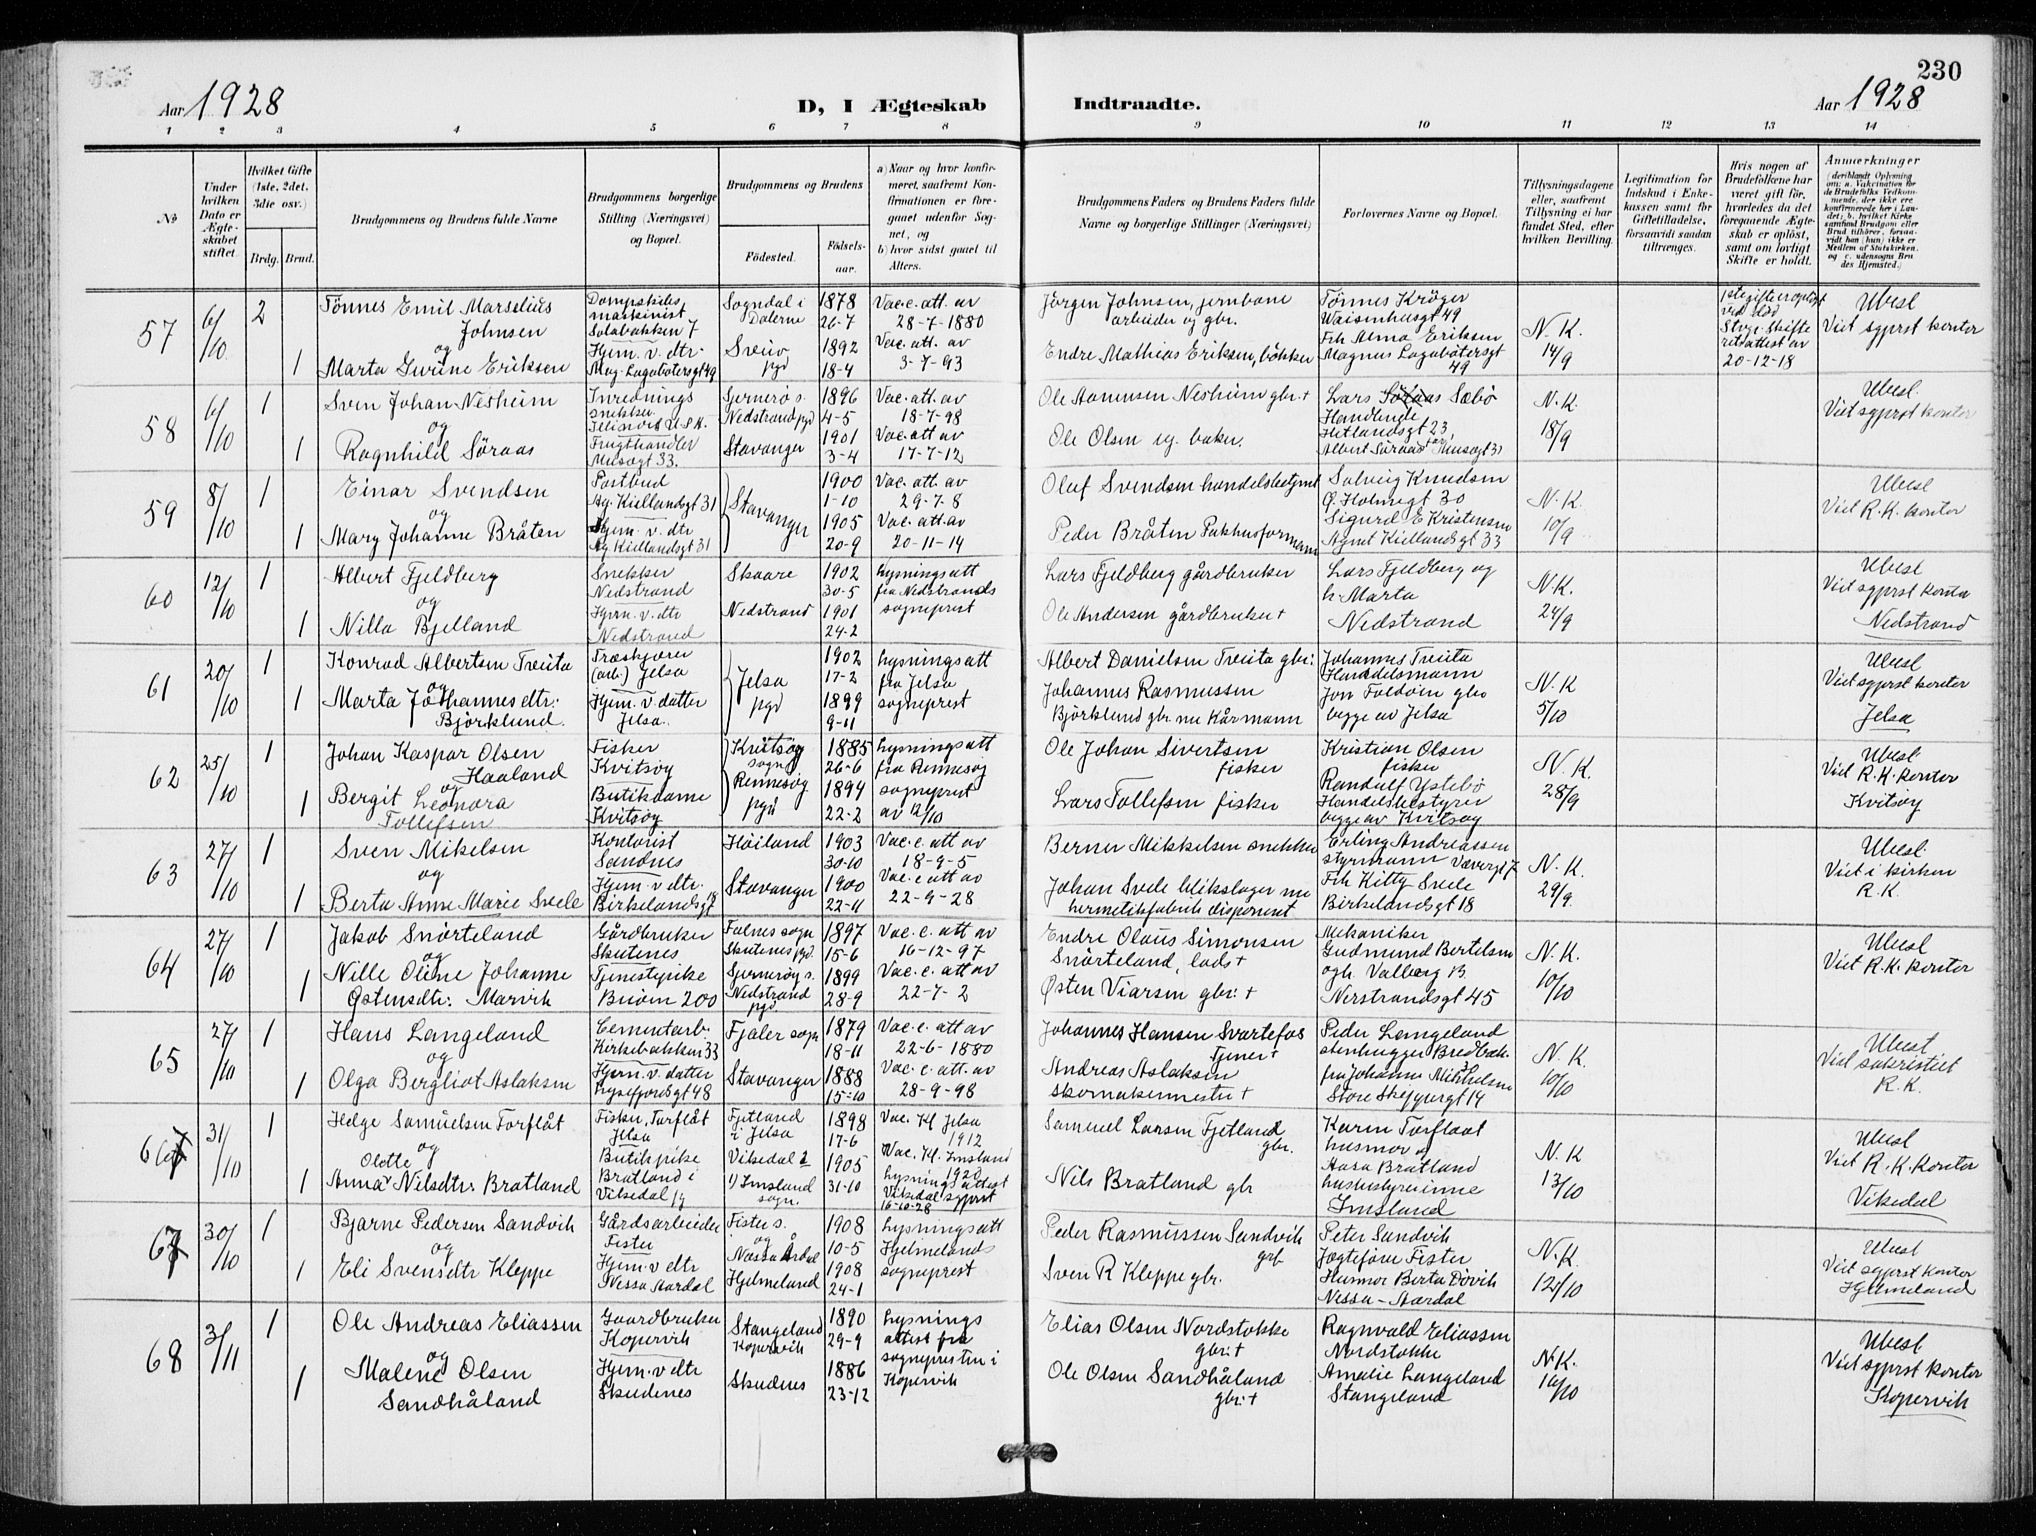 230
Aar 1928
D, I Ægteskab
Indtraadte.
Aar 1928
1 2 3 4 5 6 7 8 9 10 11 12 13 14
No
Under hvilken Dato er Ægteskabet stiftet.
Hvilket Gifte (1ste, 2det, 3die osv.)
Brdg. Brud.
Brudgommens og Brudens fulde Navne
Brudgommens borgerlige Stilling (Næringsvei) og Bopæl.
Brudgommens og Brudens
Fødested.
Fødselsaar.
a) Naar og hvor konfirmeret, saafremt Konfirmationen er foregaaet udenfor Sognet, og
b) hvor sidst gaaet til Alters.
Brudgommens Faders og Brudens Faders fulde Navne og borgerlige Stillinger (Næringsvei)
Forlovernes Navne og Bopæl.
Tillysningsdagene eller, saafremt Tillysning ei har fundet Sted, efter hvilken Bevilling.
Legitimation for Indskud i Enkekassen samt for Giftetilladelse, forsaavidt saadan tiltrænges.
Hvis nogen af Brudefolkene har været gift før, hvorledes da det foregaaende Ægteskab er opløst, samt om lovligt Skifte er holdt.
Anmærkninger
57
6/10
2
1
Tönnes Emil Marselius
Johnsen
og
Marta Gurine Eriksen
Dampskibs
maskinist
Solabakken 7
Hjem. v. dtr.
Mag. Lagabötersgt 49
Sogndal i
Dalerne
Sveio
pgd
1878
26-7
1892
18-4
Vac.c. att. av
28-7-1880
Vac. att. av
3-7-93
Jörgen Johnsen, jernbane
arbeider og gbr.
Endre Mathias Eriksen, bökker
Tönnes Kröger
Waisenhusgt 49
Frk Alma Eriksen
Magnus Lagabötersgt
49
N. K.
14/9
1ste giften oplöst
ved död
20-12-18
Ubesl
Viet sgprst kontor
58
6/10
1
1
Sven Johan Nesheim
og
Ragnhild Söraas
Inrednings
snekker
Frugthandler
Musegt 33.
Sjernerö s.
Nedstrand pgd
Stavanger
1896
4-5
1901
3-4
Vac. att. av
18-7-98
Vac. att av
17-7-12
Ole Aamunsen Nesheim gbr. +
Ole Olsen sg. baker.
Lars Sæbö
Handlende
Hetlandsgt 23,
Albert Söraas Musegt 31
N. K.
18/9
Ubesl.
Viet sgprst kontor
59
8/10
1
1
Einar Svendsen
og
Mary Johanne Bråten
Postbud
Ag. Kiellandsgt 31
Hjem. v. dtr
Ag Kiellandsgt 31
Stavanger
1900
1-10
1905
20-9
Vac. att. av
29-7-8
Vac. att. av
20-11-14
Oluf Svendsen handelsbetjent
Peder Bråten Pakhusformann
Solveig Knudsen
Ø. Holmegt 30
Sigurd E Kristensen
Agnet Kiellandsgt 33
N. K.
10/9
Ubesl
Viet R. K. kontor
60
12/10
1
1
Albert Fjeldberg
og
Nilla Bjelland
Snekker
Nedstrand
Hjem. v. dtr
Nedstrand
Skaare
Nedstrand
1902
30-5
1901
24-2
Lysningsatt
fra Nedstrands
sogneprest
Lars Fjeldberg gårdbruker
Ole Andersen gårdbruker +
Lars Fjeldberg og
h. Marta
Nedstrand
N. K.
24/9
Ubesl
Viet sgprst kontor
Nedstrand
61
20/10
1
1
Konrad Albertsen Treita
og
Marta Johannesdtr:
Björklund.
Træskjærer
(arb.) Jelsa
Hjem. v. datter
Jelsa
Jelsa
pgd
1902
17-2
1899
9-11
Lysningsatt
fra Jelsa
sogneprest
Albert Danielsen Treita gbr:
Johannes Rasmussen
Björklund gbr. nu kårmann
Johannes Treita
Handelsmann
Jon Foldöen gbr
begge av Jelsa
N. K
5/10
Ubesl
Viet sgprst kontor
Jelsa
62
25/10
1
1
Johan Kaspar Olsen
Haaland
og
Bergit Leonora
Tollefsen
Fisker
Kvitsöy
Butikdame
Kvitsöy
Kvitsöy
sogn
Rennesöy
pgd
1885
26-6
1894
22-2
Lysningsatt
fra Rennesöy
sogneprest
av 12/10
Ole Johan Sivertsen
fisker
Lars Tollefsen fisker
Kristian Olsen
fisker
Randulf Ystebö
Handelsbestyrer
begge av Kvitsöy
N. K.
28/9
Ubesl
Viet R. K. kontor
Kvitsöy
63
27/10
1
1
Sven Mikelsen
og
Berta Anne Marie Svele
Kontorist
Sandnes
Hjem. v dtr.
Birkelandsgt 18
Höiland
Stavanger
1903
30-10
1900
22-11
Vac. c. att av
18-9-5
Vac. c att av
22-9-28
Berner Mikkelsen snekker
Johan Svele blikslager nu
hermetikfabrik disponent
Erling Andreassen
styrmann Vævergt 7
Frk Kitty Svele
Birkelandsgt 18
N. K.
29/9.
Ubesl.
Viet i kirken
R. K.
64
27/10
1
1
Jakob Snörteland
og
Nille Oline Johanne
Östensdtr: Marvik
Gårdbruker
Skutenes
Tjenestepike
Buöen 200
Falnes sogn
Skutenes pgd.
Sjernerøy s.
Nedstrand
pgd
1897
15-6
1899
28-9
Vac. c. att av
16-12-97
Vac. c. att av
22-7-2
Endre Olaus Simonsen
Snörteland, lods +
Østen Viarsen gbr: +
Mekaniker
Gudmund Bertelsen
og h. Valborg B.
Nerstrandsgt 45
N. K.
10/10
Ubesl
Viet R. K. kontor
65
27/10
1
1
Hans Langeland
og
Olga Bergliot Aslaksen
Cementarb.
Kirkebakken 33
Hjem. v. datter
Lysefjordsgt 48
Fjaler sogn
Stavanger
1879
18-11
1888
15-10
Vac. c. att av
22-6-1880
Vac. c. att. av
28-9-98
Johannes Hansen Svartefos
Tjener +
Andreas Aslaksen
skomakermester +
Peder Langeland
stenhugger Bredbak.
fru Johanne Mikkelsen
Store Skippergt 14
N. K.
10/10
Ubesl
Viet sakristiet
R. K.
66
31/10
1
1
Helge Samuelsen Torflåt
og
Olette
Anna Nilsdtr: Bratland
Fisker, Torflåt
Jelsa
Butikpike
Bratland i
Vikedal pg
Fjetland
i Jelsa
Vikedal 2
1) Imsland
sogn.
1898
17-6
1905
31-10
Vac. Kl. Jelsa
1912
Vac. Kl. Imsland
1920
Lysningsattest
Vikedal sgprst
16-10-28
Samuel Larsen Fjetland
gbr.
Nils Bratland gbr
Karen Torflaat
husmor og
Aasa Bratland
husbestyrerinne
Imsland
N. K
13/10
Ubesl
Viet R. K. kontor
Vikedal
67
30/10
1
1
Bjarne Pedersen Sandvik
og
Eli Svensdtr Kleppe
Gårdsarbeider
Fister
Hjem. v dtr
Nessa Aardal
Fister s.
og
Nessa Årdal
Hjelmeland
1908
10-5
1908
24-1
Lysningsatt
Hjelmelands
sogneprest
Peder Rasmussen Sandvik
gbr
Sven R Kleppe gbr.
Peter Sandvik
Jægtefører Fister
Husmor Berta Døvik
Nessa-Aardal
N. K.
12/10
Ubesl
Viet sgprst kontor
Hjelmeland
68
3/11
1
1
Ole Andreas Eliassen
og
Malene Olsen
Sandhåland
Gaardbruker
Kopervik
Hjem. v dtr
Skudenes
Stangeland
Kopervik
Skudenes
1890
29-9
1886
23-12
Lysnings
attest fra
sognepresten i
Kopervik
Elias Olsen Nordstokke
gbr: +
Ole Olsen Sandhåland
gbr: +
Ragnvald Eliassen
Nordstokke
Amalie Langeland
Stangeland
N. K.
16/10
Ubesl
Viet sgprst kontor
Kopervik